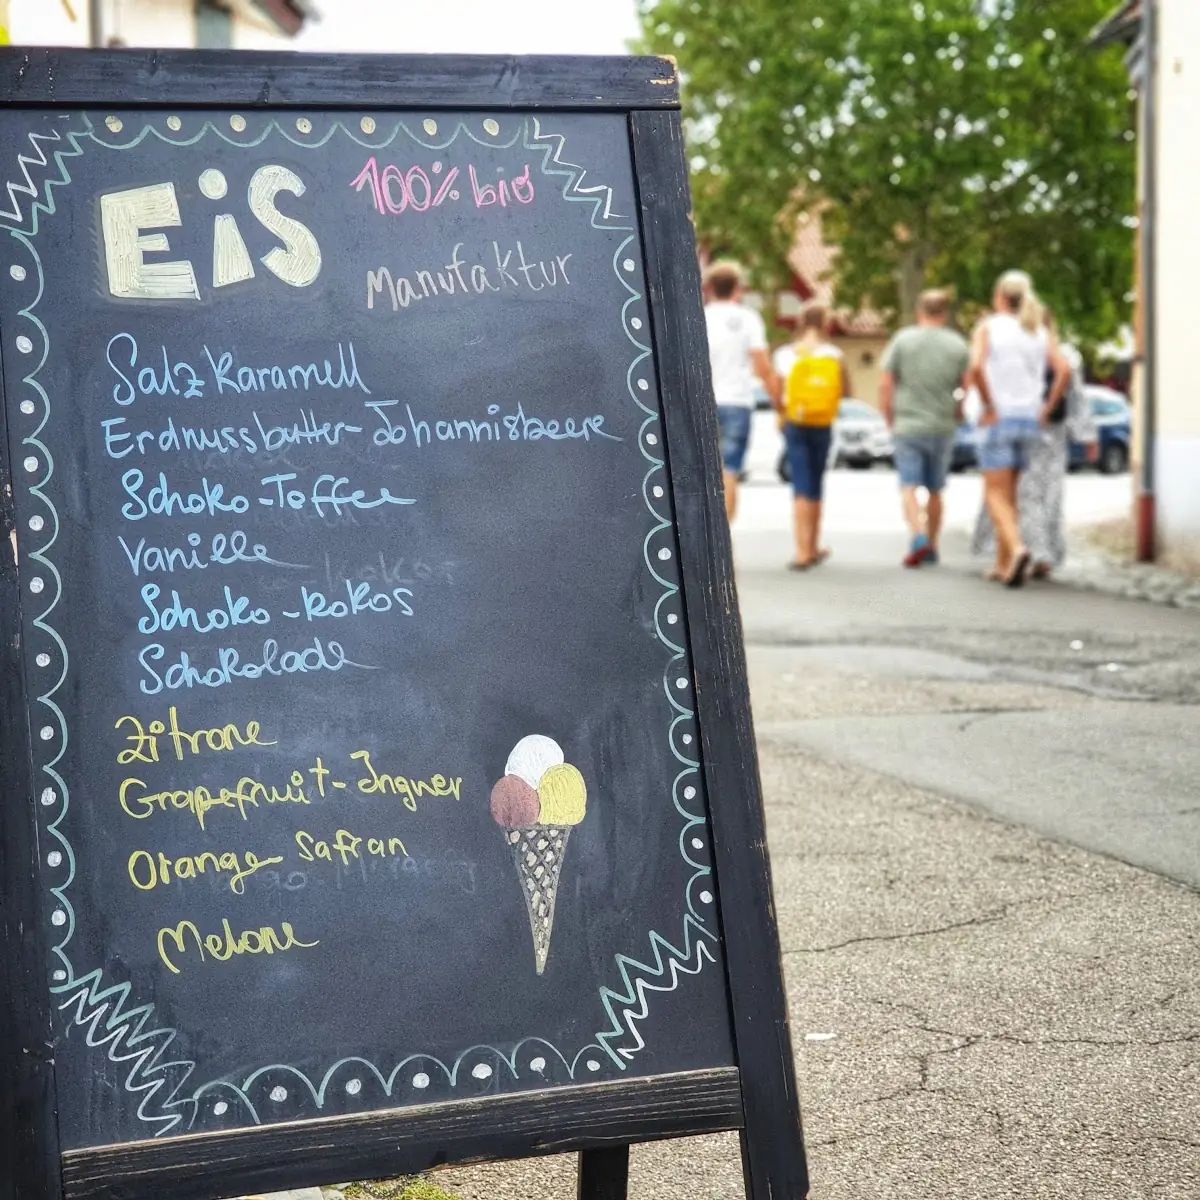 EiS
100% bio
Manufaktur
Salz Karamell
Erdnussbutter-Johannisbeere
Schoko-Toffee
Vanille
Schoko-Kokos
Schokolade
Zitrone
Grapefruit-Ingwer
Orange Safran
Melone